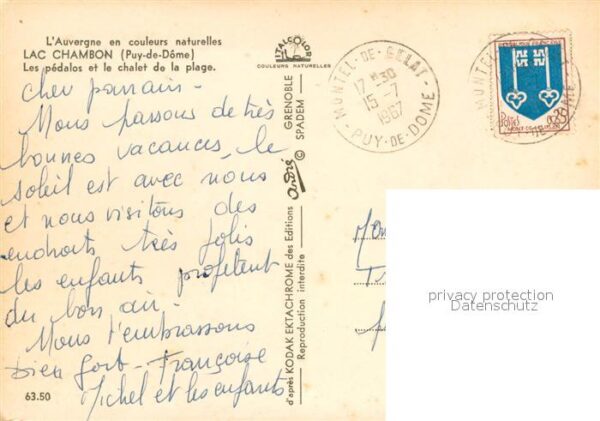 L'Auvergne en couleurs naturelles
LAC CHAMBON (Puy-de-Dôme)
Les pédalos et le chalet de la plage.
cher parrain -
Nous passons de très
bonnes vacances, le
soleil est avec nous
et nous visitons des
endroits très jolis
les enfants profitent
du bon air -
Nous t'embrassons
bien fort - Françoise
Michel et les enfants
63.50
ITALCOLOR
COULEURS NATURELLES
d'après KODAK EKTACHROME des Editions
Reproduction interdite
André ©
GRENOBLE
SPADEM
MONTEL-DE-GELAT
17 H 30
15-7
1967
PUY-DE-DOME
REPUBLIQUE FRANCAISE
MONT-DE-MARSAN
privacy protection
Datenschutz